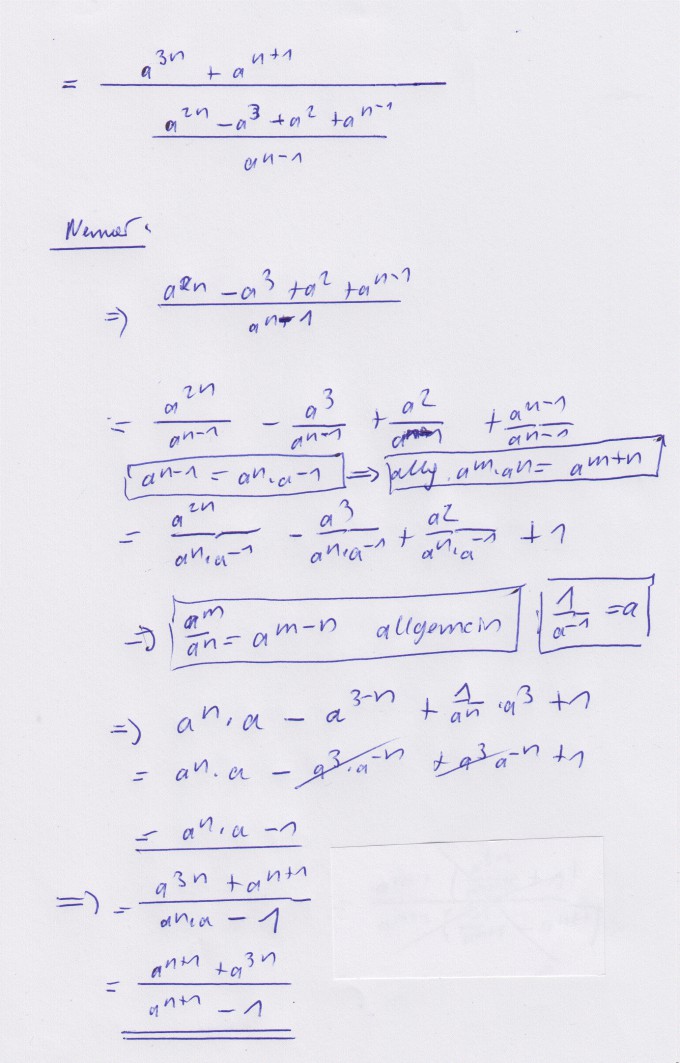 = (a^{3n} + a^{n+1}) / ((a^{2n} - a^3 + a^2 + a^{n-1}) / a^{n-1})
Nenner:
=> (a^{2n} - a^3 + a^2 + a^{n-1}) / a^{n-1}
= a^{2n}/a^{n-1} - a^3/a^{n-1} + a^2/a^{n-1} + a^{n-1}/a^{n-1}
a^{n-1} = a^n · a^{-1} => allg. a^m · a^n = a^{m+n}
= a^{2n}/(a^n · a^{-1}) - a^3/(a^n · a^{-1}) + a^2/(a^n · a^{-1}) + 1
=> a^m/a^n = a^{m-n} allgemein 1/a^{-1} = a
=> a^n · a - a^{3-n} + 1/a^n · a^3 + 1
= a^n · a - a^3 · a^{-n} + a^3 a^{-n} + 1
= a^n · a - 1
=> = (a^{3n} + a^{n+1}) / (a^n · a - 1)
= (a^{n+1} + a^{3n}) / (a^{n+1} - 1)